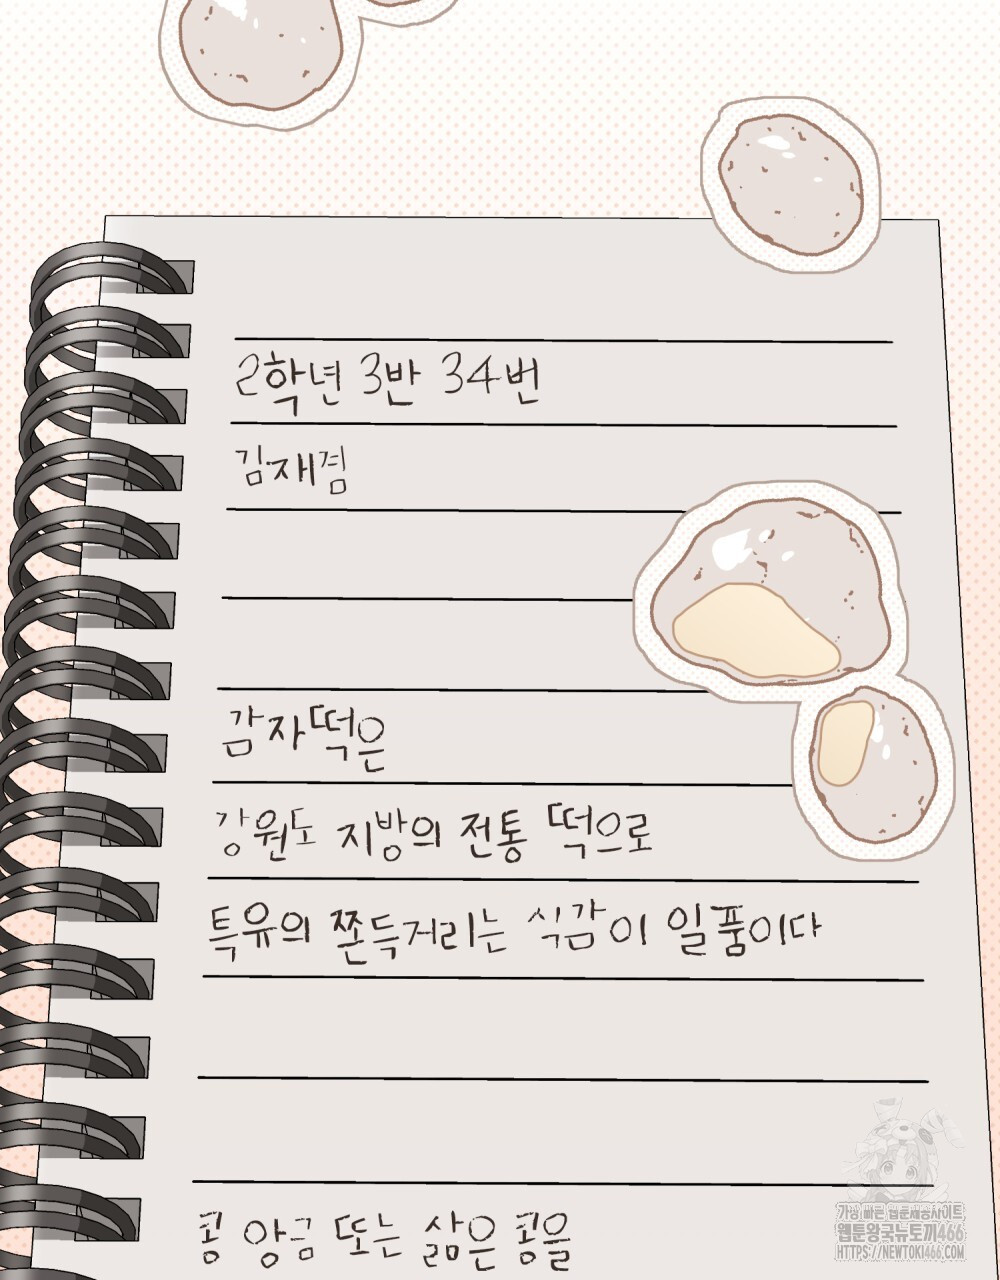 2학년 3반 34번
김재겸
감자떡은
강원도 지방의 전통 떡으로
특유의 쫀득거리는 식감이 일품이다
콩 앙금 또는 삶은 콩을
가장 빠른 웹툰제공사이트
웹툰왕국뉴토끼466
HTTPS://NEWTOKI466.COM